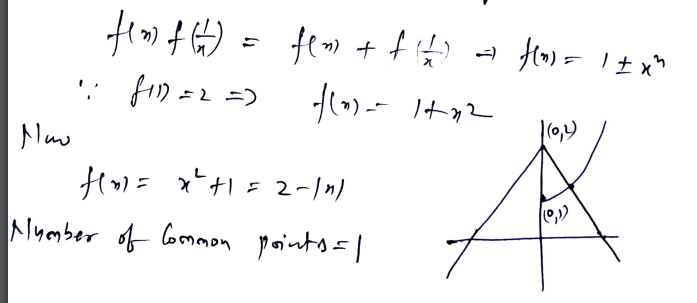 f(x) f(1/x) = f(x) + f(1/x) ⇒ f(x) = 1 ± xⁿ
∵ f(1) = 2 ⇒ f(x) = 1 + x²
Now
f(x) = x² + 1 = 2 - |x|
Number of Common points = 1
(0,2)
(0,1)